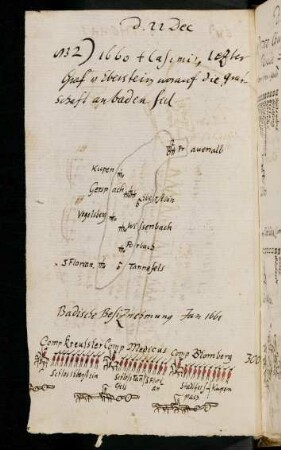 D. 22 Dec
N32) 1660 + Casimir, letzter
Graf v Eberstein worauf die graf-
schaft an baden fiel
Fr auenalb
Kupen
Gerns ach
Eberstein
Vogelsberg
Wissenbach
Forbach
S. Florian
Tannefels
Badische Besitznemung Jan 1661
Comp Kreussler Comp Medicus Comp Blomberg 300
Schloss Eberstein